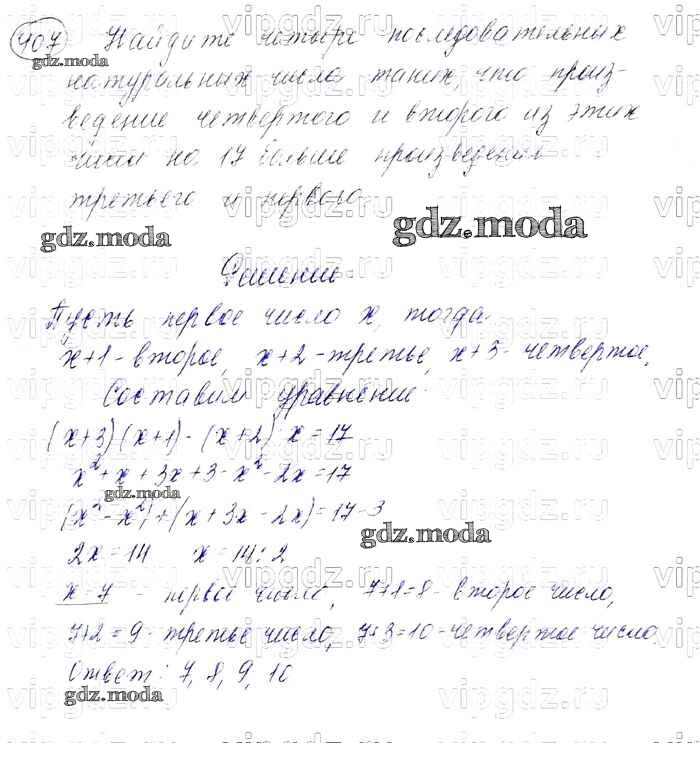 407 Найдите четыре последовательных
gdz.moda
натуральных числа таких, что произ-
ведение четвертого и второго из этих
чисел на 17 больше произведения
третьего и первого
gdz.moda
gdz.moda
Решение.
Пусть первое число x, тогда
x+1 - второе, x+2 - третье, x+3 - четвертое.
Составим уравнение:
(x+3)(x+1) - (x+2) x = 17
x²+x+3x+3-x²-2x=17
gdz.moda
(x²-x²)+(x+3x-2x)=17-3
gdz.moda
2x=14 x=14:2
x=7 - первое число, 7+1=8 - второе число,
7+2=9 - третье число, 7+3=10 - четвертое число.
Ответ: 7, 8, 9, 10
gdz.moda